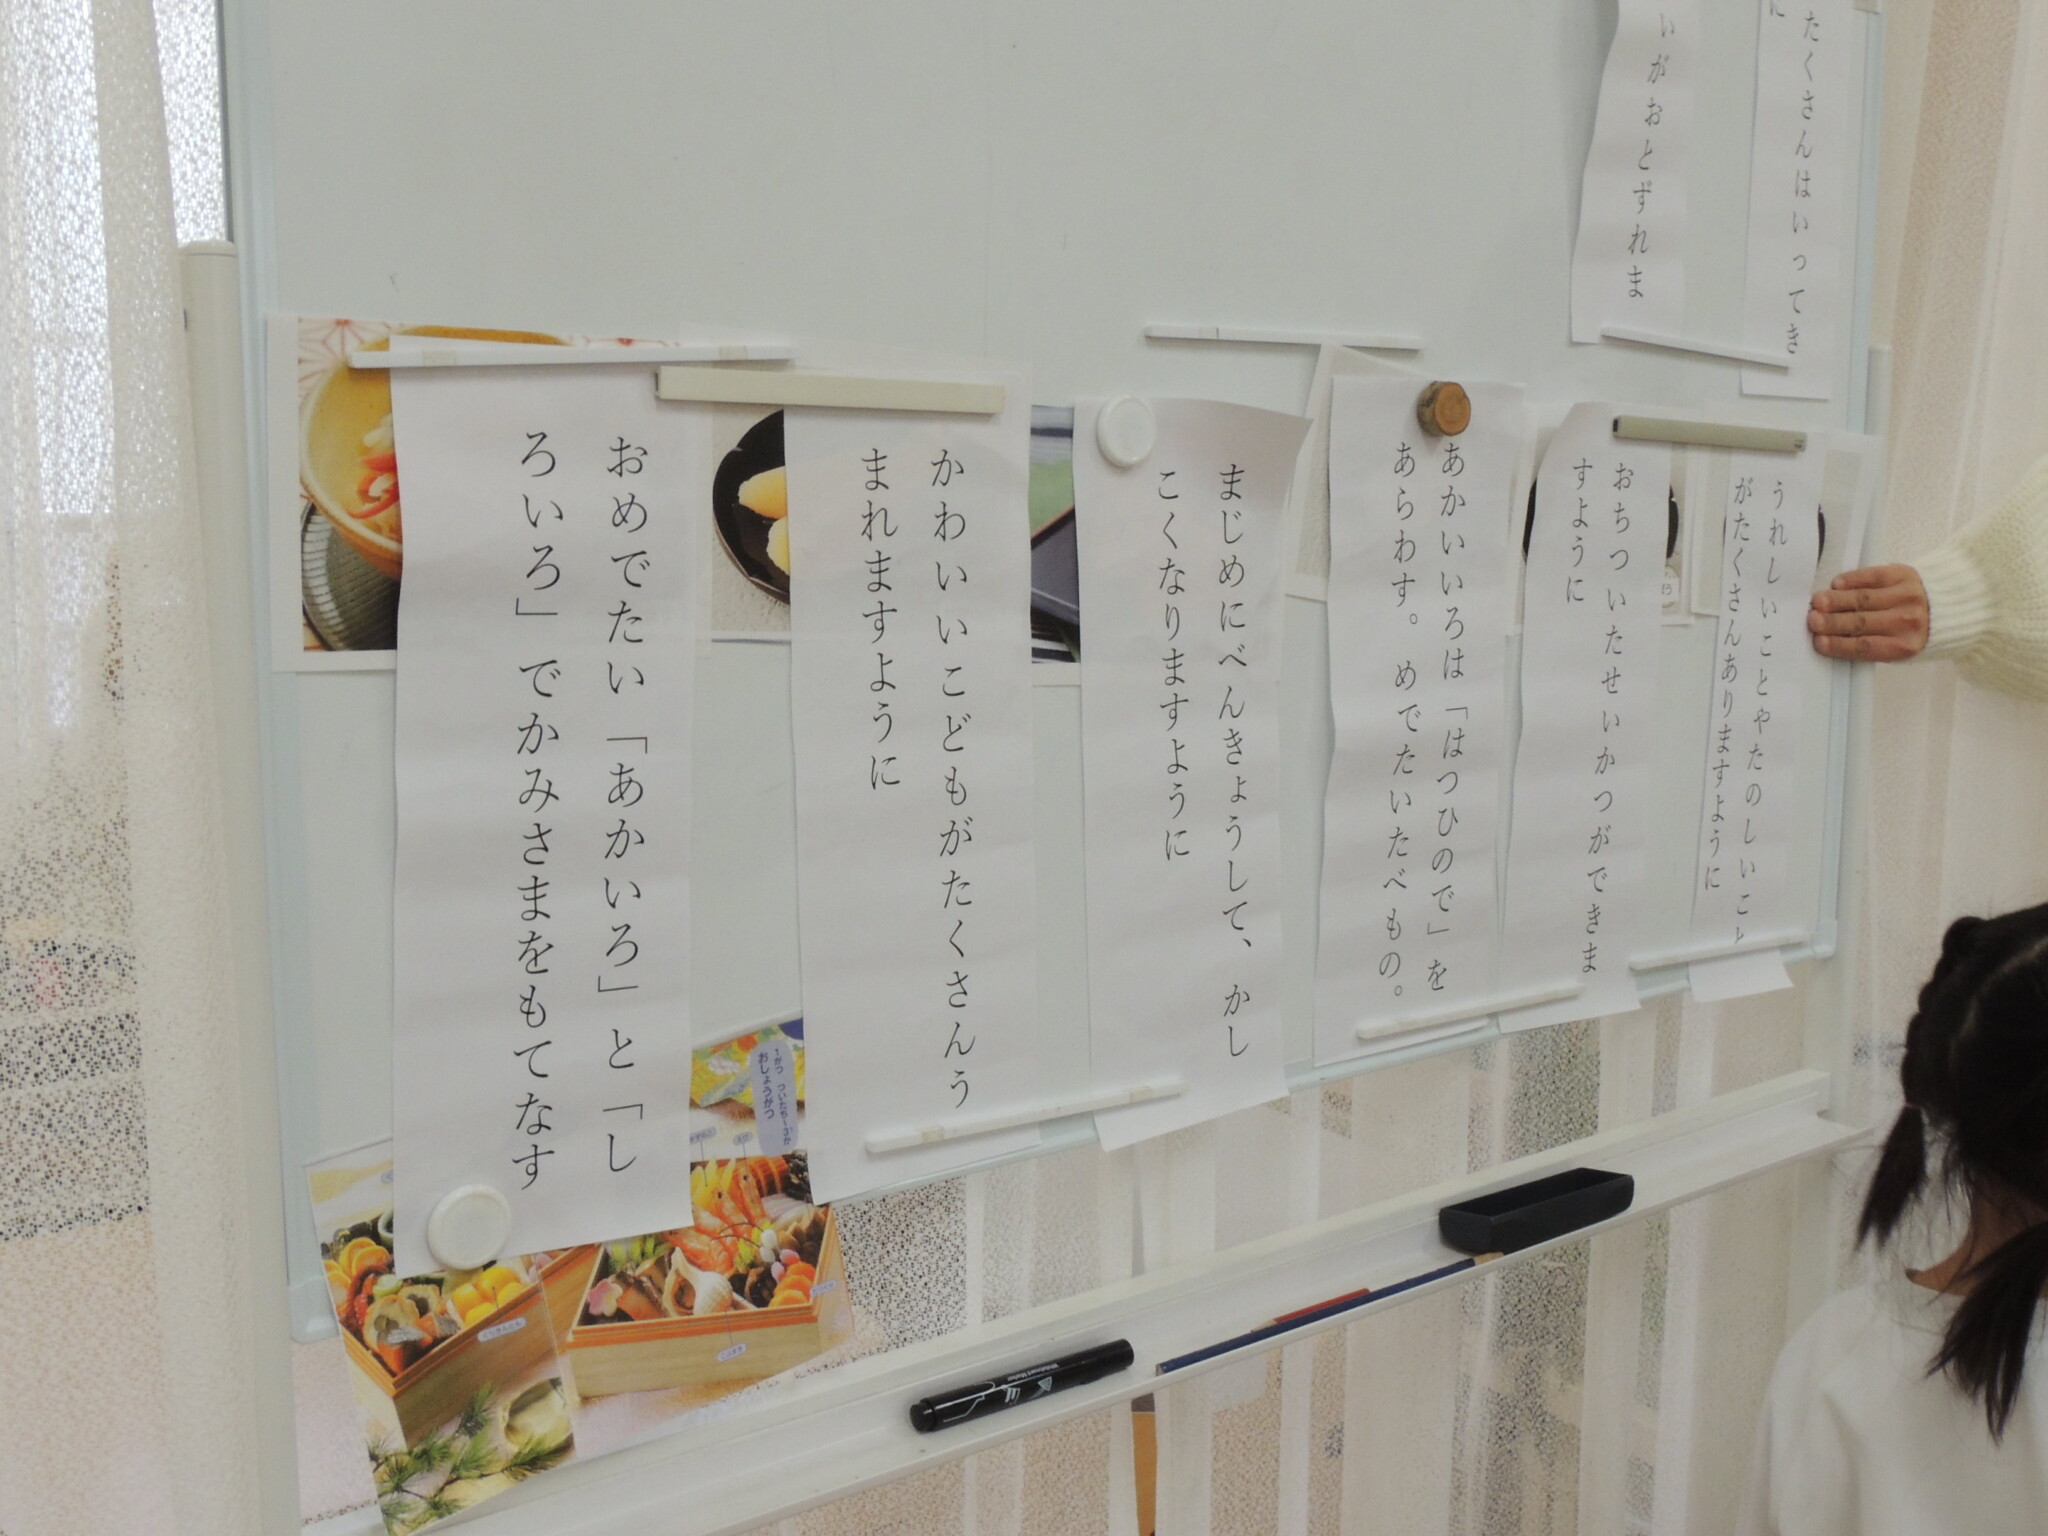 たくさんはいってき
に
いがおとずれま
うれしいことやたのしいこと
がたくさんありますように
おちついたせいかつができま
すように
あかいいろは「はつひので」を
あらわす。めでたいたべもの。
まじめにべんきょうして、かし
こくなりますように
かわいいこどもがたくさんう
まれますように
おめでたい「あかいろ」と「し
ろいろ」でかみさまをもてなす
1がつ ついたち~3か
おしょうがつ